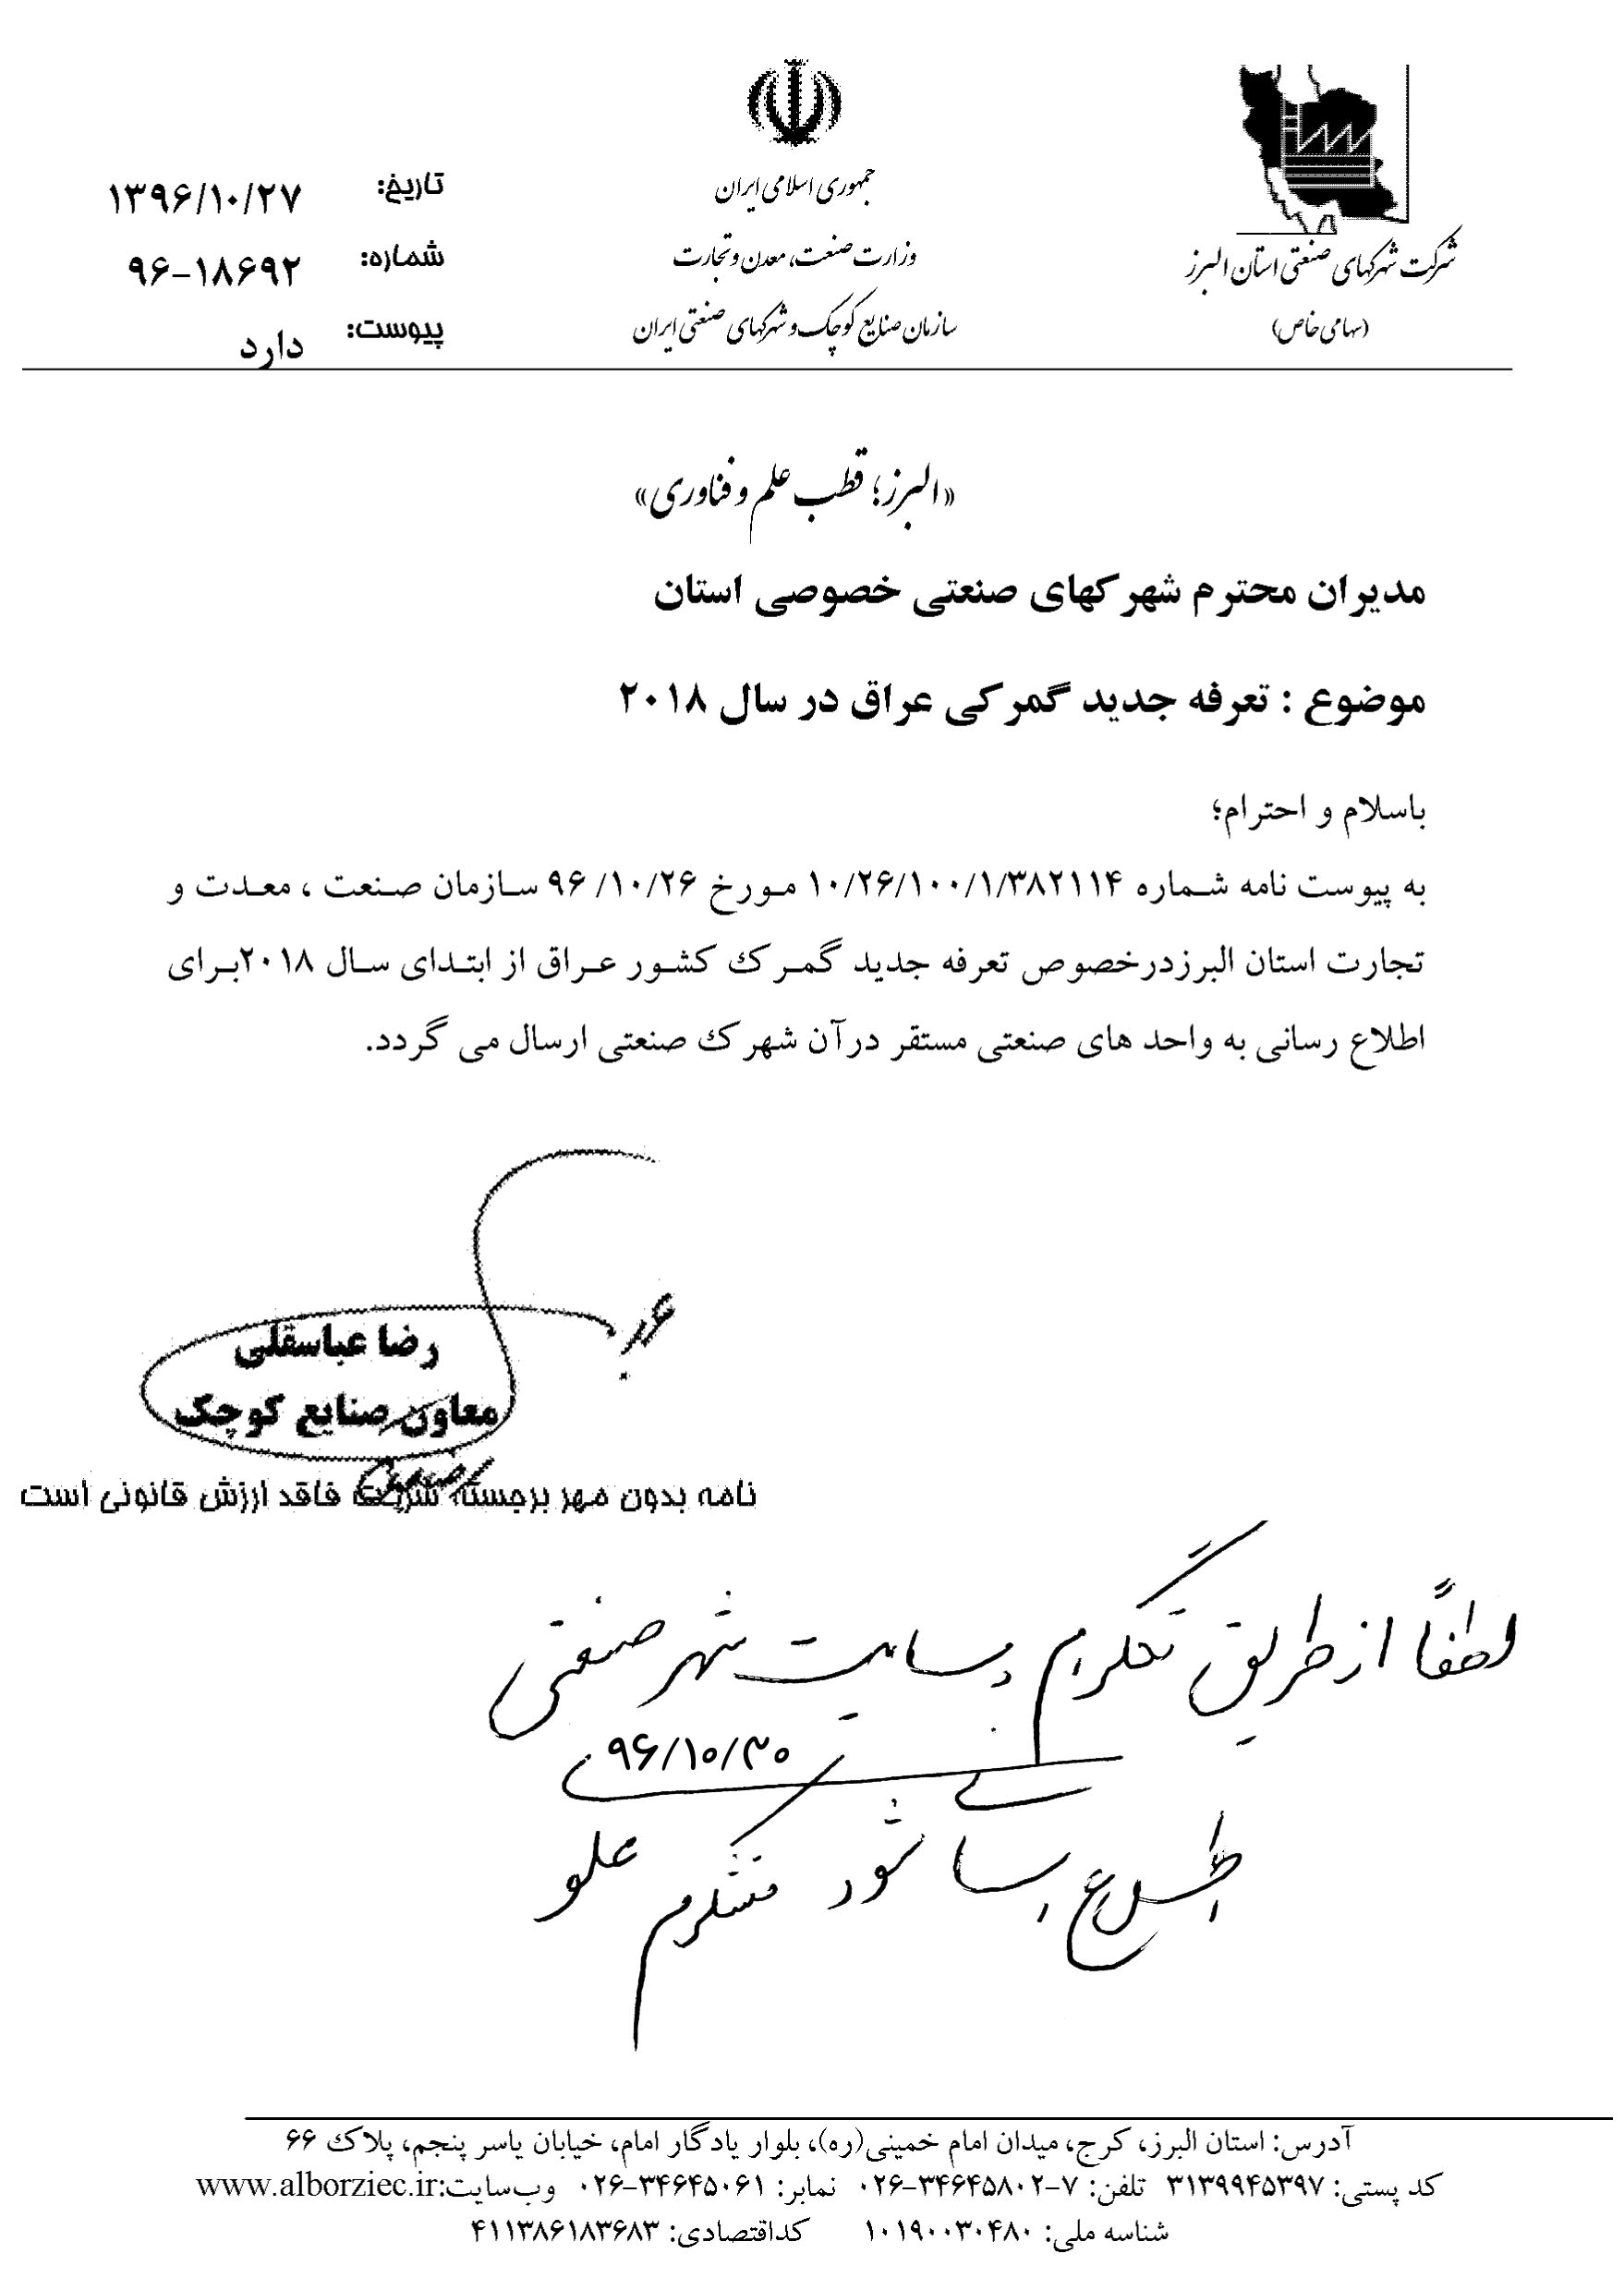 شرکت شهرکهای صنعتی استان البرز
(سهامی خاص)
جمهوری اسلامی ایران
وزارت صنعت، معدن و تجارت
سازمان صنایع کوچک و شهرکهای صنعتی ایران
تاریخ: ۱۳۹۶/۱۰/۲۷
شماره: ۹۶-۱۸۶۹۲
پیوست: دارد
«البرز؛ قطب علم و فناوری»
مدیران محترم شهرکهای صنعتی خصوصی استان
موضوع : تعرفه جدید گمرکی عراق در سال ۲۰۱۸
باسلام و احترام؛
به پیوست نامه شماره ۱۰/۲۶/۱۰۰/۱/۳۸۲۱۱۴ مورخ ۹۶/۱۰/۲۶ سازمان صنعت ، معدت و
تجارت استان البرزدرخصوص تعرفه جدید گمرک کشور عراق از ابتدای سال ۲۰۱۸برای
اطلاع رسانی به واحد های صنعتی مستقر درآن شهرک صنعتی ارسال می گردد.
رضا عباسقلی
معاون صنایع کوچک
نامه بدون مهر برجسته شرکت فاقد ارزش قانونی است
لطفاً از طریق تلگرام وبسایت شهر صنعتی
۹۶/۱۰/۳۰
شود متشکرم
آدرس: استان البرز، کرج، میدان امام خمینی(ره)، بلوار یادگار امام، خیابان یاسر پنجم، پلاک ۶۶
کد پستی: ۳۱۳۹۹۴۵۳۹۷ تلفن: ۷-۰۲۶-۳۴۶۴۵۸۰۲ نمابر: ۰۲۶-۳۴۶۴۵۰۶۱ وب‌سایت:www.alborziec.ir
شناسه ملی: ۱۰۱۹۰۰۳۰۴۸۰ کداقتصادی: ۴۱۱۳۸۶۱۸۳۶۸۳